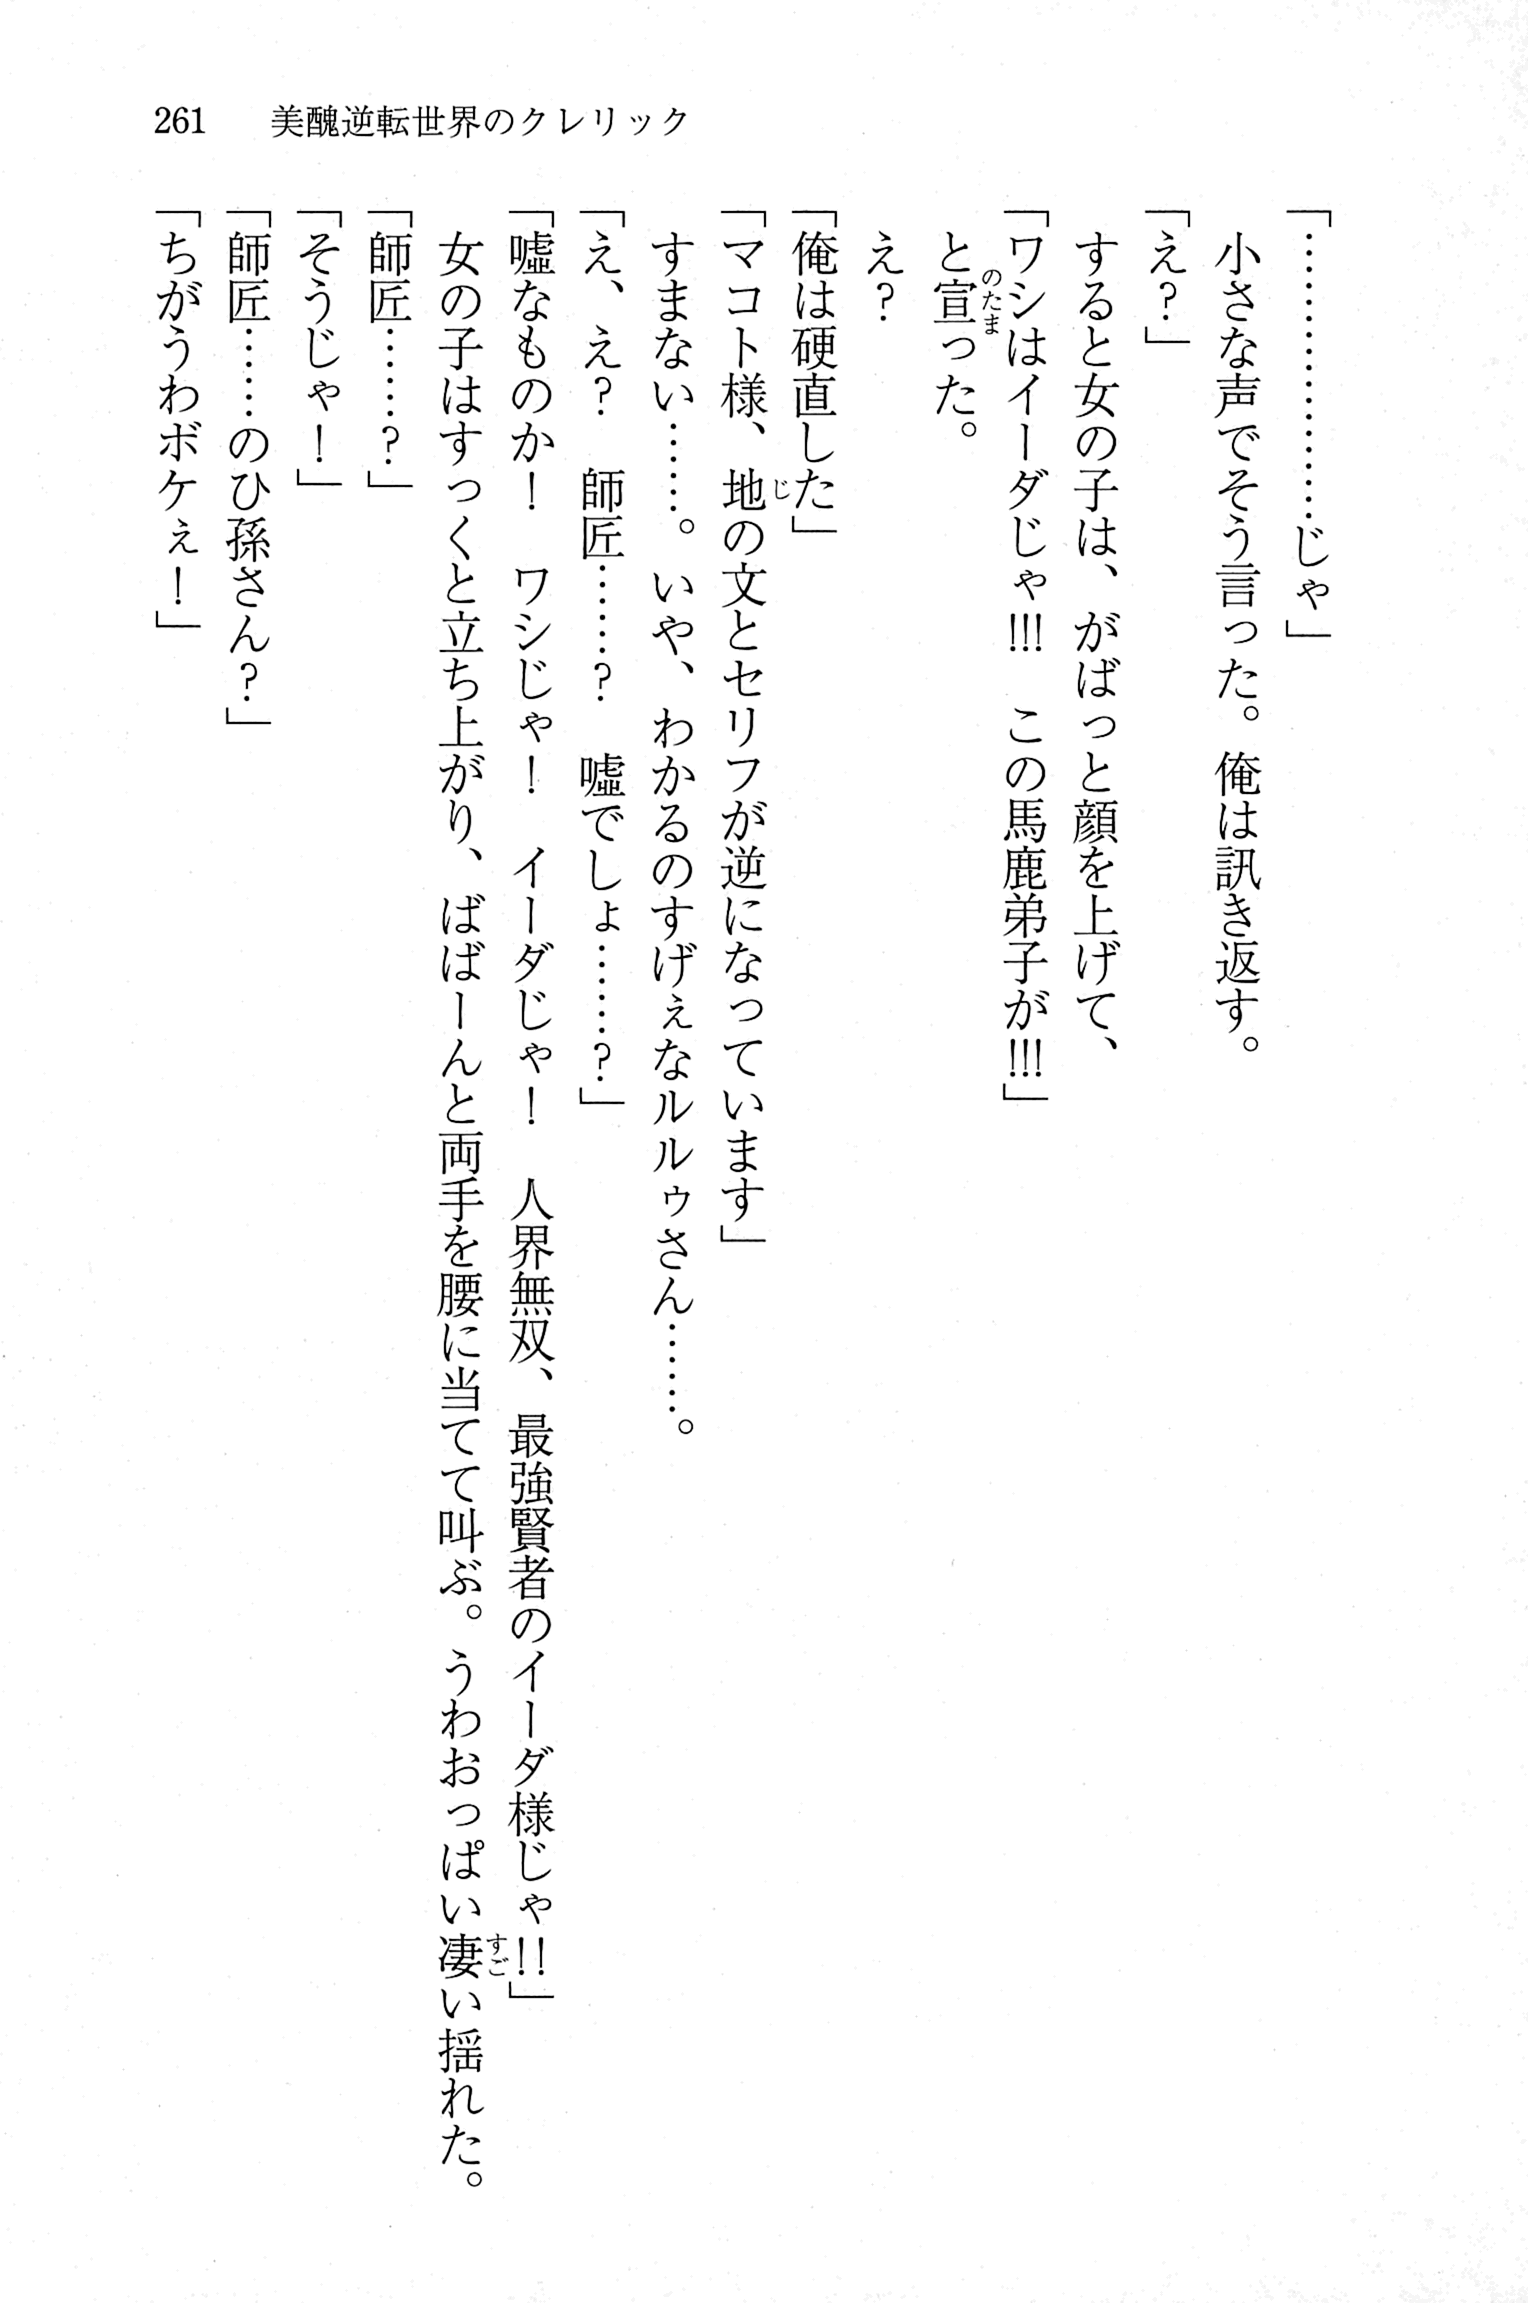 261 美醜逆転世界のクレリック
「………………じゃ」
小さな声でそう言った。俺は訊き返す。
「え?」
すると女の子は、がばっと顔を上げて、
「ワシはイーダじゃ!!! この馬鹿弟子が!!!」
と宣った。
のたま
え?
「俺は硬直した」
「マコト様、地の文とセリフが逆になっています」
じ
すまない……。いや、わかるのすげぇなルルゥさん……。
「え、え? 師匠……? 嘘でしょ……?」
「嘘なものか! ワシじゃ! イーダじゃ! 人界無双、最強賢者のイーダ様じゃ!!」
女の子はすっくと立ち上がり、ばばーんと両手を腰に当てて叫ぶ。うわおっぱい凄い揺れた。
すご
「師匠……?」
「そうじゃ!」
「師匠……のひ孫さん?」
「ちがうわボケぇ!」